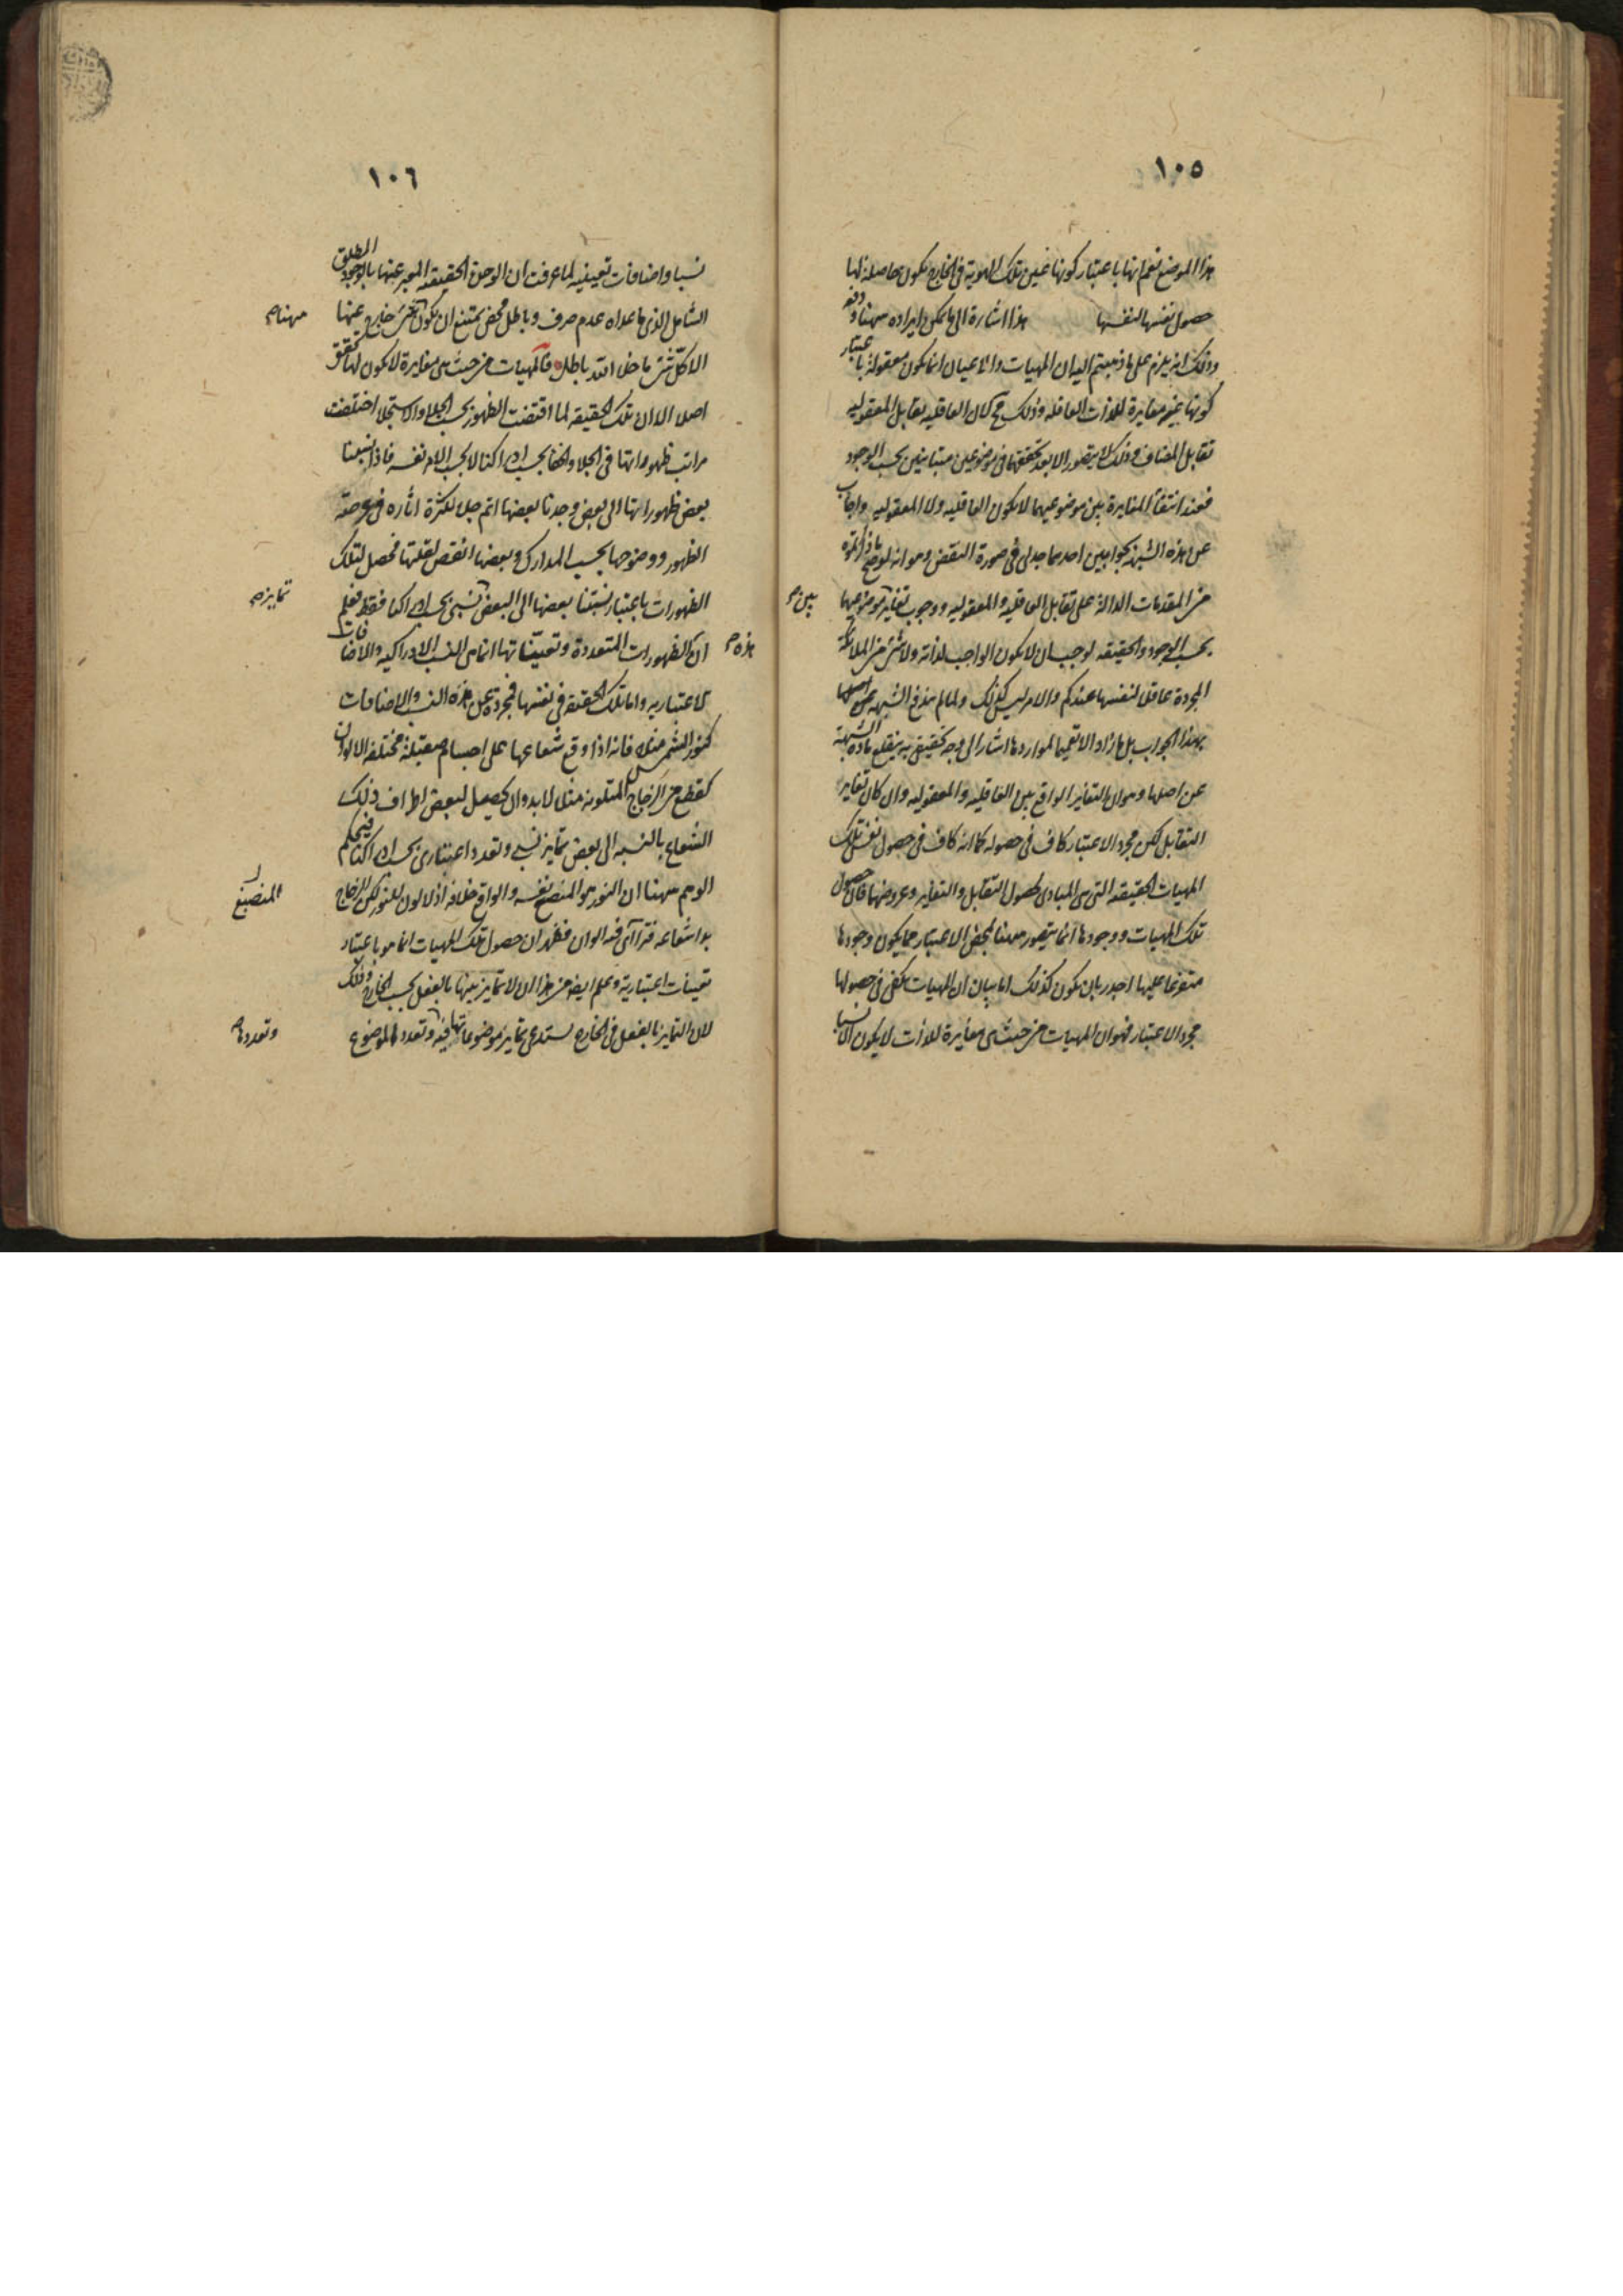 ١٠٥
هذا الموضع نعم انها باعتبار كونها عين تلك الهوية فى الخارج يكون حاصلة لها
حصول نفسها لنفسها هذا اشارة الى ما يمكن ايراده ههنا ودفعه
وذلك انه يلزم على ما ذهبتم اليه ان المهيات والاعيان انما يكون معقولة باعتبار
كونها غير مغايرة للذات العاقله وذلك مح لان العاقليه يقابل المعقوليه
تقابل المضاف وذلك لا يتصور الا بعد تحققهما فى موضوعين متباينين بحسب الوجود
فعند انتفاء المغايرة بين موضوعيهما لا يكون العاقليه ولا المعقوليه واجاب
عن هذه الشبهة بجوابين احدهما جدلى فى صورة النقض وهو انه لو صح ما ذكرتموه
من المقدمات الدالة على تقابل العاقليه والمعقوليه ووجوب تغاير موضوعيهما
بين صح
بحسب الوجود والحقيقه لوجب ان لا يكون الواجب لذاته ولا شئ من الملائكة
المجردة عاقلا لنفسها عندكم والامر ليس كذلك ولما لم يندفع الشبهه عن اصلها
بهذا الجواب بل ما زاد الا تعميما لمواردها اشار الى وجه تحقيقى به ينقلع مادة الشبهة
عن اصلها وهو ان التغاير الواقع بين العاقليه والمعقوليه وان كان تغاير
التقابل لكن مجرد الاعتبار كاف فى حصوله كما انه كاف فى حصول نفس تلك
المهيات الحقيقه التى هى المبادى لحصول التقابل والتغاير وعروضهما فان حصول
تلك المهيات ووجودها انما يتصور ههنا بمحض الاعتبار فما يكون وجودها
متفرعا عليها اجدر بان يكون كذلك اما بيان ان المهيات يكفى فى حصولها
مجرد الاعتبار فهو ان المهيات من حيث هى مغايرة للذات لا يكون الا نسبا
١٠٦
نسبا واضافات تعينيه لما عرفت ان الوحدة الحقيقة المعبر عنها بالوجود المطلق
الشامل الذى ما عداه عدم صرف وباطل محض يمتنع ان يكون شئ خارج عنها
ههنا صح
الا كل شئ ما خلا الله باطل فالمهيات من حيث هى مغايرة لا يكون لها تحقق
اصلا الا ان تلك الحقيقه لما اقتضت الظهور بحسب الجلاء والاستجلاء اختلفت
مراتب ظهوراتها فى الجلاء والخفا بحسب ادراكنا لا بحسب الامر نفسه فاذا نسبنا
بعض ظهوراتها الى بعض وجدنا بعضها اتم جلاء لكثرة اثاره فى عرصة
الظهور ووضوحها بحسب المدارك وبعضها انقص لقلتها فحصل لتلك
الظهورات باعتبار نسبتنا بعضها الى البعض نسبى بحسب ادراكنا فقط فعلم
تمايز صح
ان الظهورات المتعددة وتعيناتها انما هى النسب الادراكيه والاضافات
هذه صح
الاعتباريه واما تلك الحقيقة فى نفسها فمجردة عن هذه النسب والاضافات
كنور الشمس مثلا فانه اذا وقع شعاعها على اجسام صقيلة مختلفه الالوان
كقطع من الزجاج المتلونه مثلا لابد وان يحصل لبعض اطراف ذلك
الشعاع بالنسبه الى بعض تمايز نسبى وتعدد اعتبارى بحسب ادراكنا فيحكم
الوهم ههنا ان النور هو المنصبغ نفسه والواقع خلافه اذ لا لون للنور لكن الزجاج
المنصبغ
بدا شعاعه فتراآى فيه الوان فظهر ان حصول تلك المهيات انما هو باعتبار
تعينات اعتبارية وعلم ايضا من هذا ان لا تمايز بينها بالفعل بحسب الخارج وذلك
لان التمايز بالفعل فى الخارج يستدعى تمايز موضوعاتها فيه وتعدد الموضوع
وتعددها صح